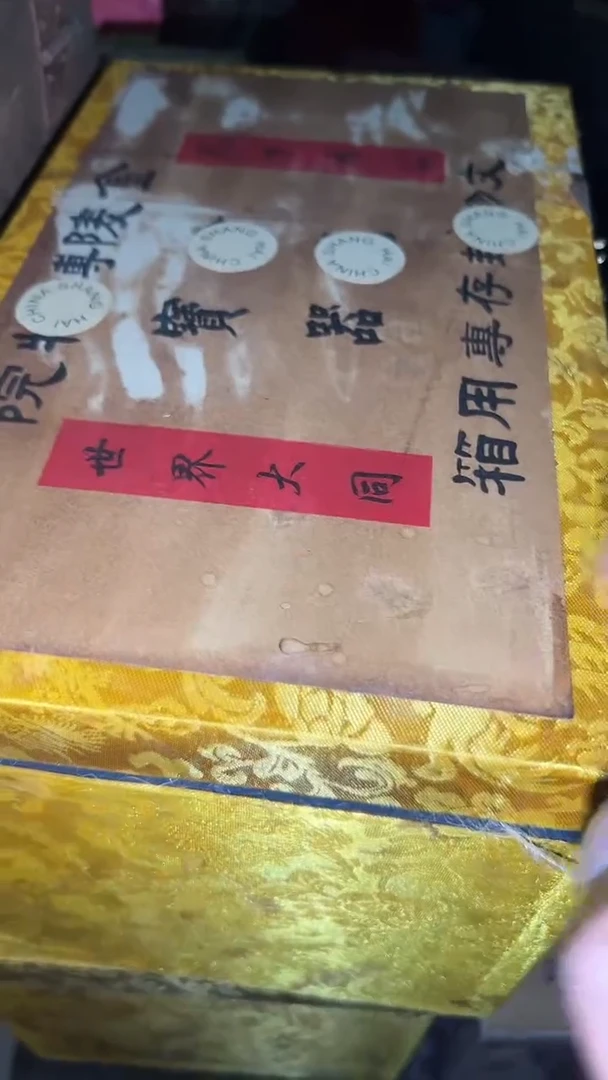 金陵博物院
寶器
文物封存專用箱
世界大同
SHANG HAI CHINA
SHANG HAI CHINA
SHANG HAI CHINA
SHANG HAI CHINA